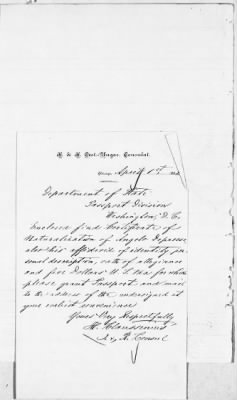 K. & K. Oest.-Ungar. Consulat.
April 1st
Department of State
Passport Division
Washington, D.C.
Enclosed find Certificate of
Naturalization of Angelo
also his affidavit of identity, per-
sonal description, oath of allegiance
and five Dollars U.S. for which
please grant Passport and mail
to the address of the undersigned at
your earliest convenience
Yours Very Respectfully
H. Claussenius